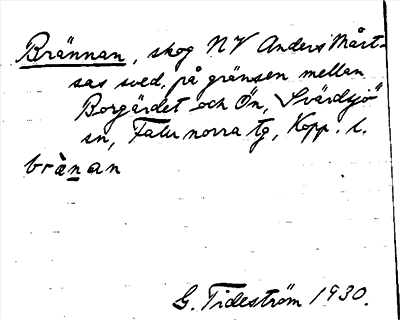 Brännan, skog NV Anders Mårt-
sas sved, på gränsen mellan
Borgärdet och Ön, Svärdsjö
sn, Falu norra tg, Kopp. l.
brànan
G. Tideström 1930.